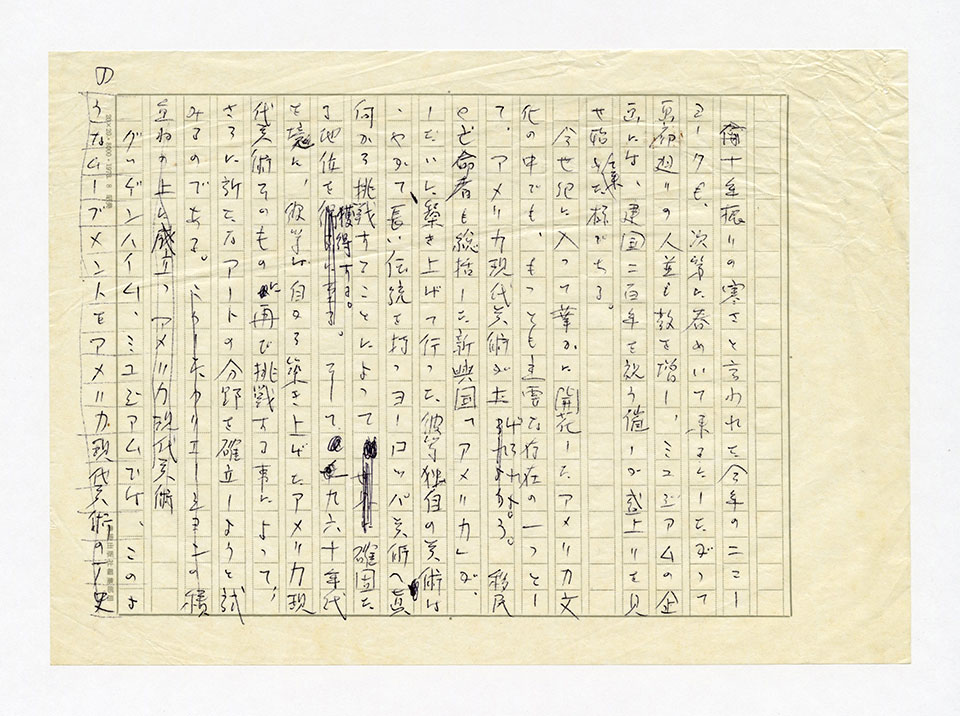 何十年振りの寒さと言われた今年のニュー
ヨークも、次第に春めいて来るにしたがって
美術廻りの人並も数を増し、ミュージアムの企
画には、建国二百年を祝う催しが盛上りを見
せ始めた様である。
今世紀に入って華かに開花したアメリカ文
化の中でも、もっとも主要な存在の一つとし
て、アメリカ現代美術が上げられよう。移民
と亡命者も総括した新興国「アメリカ」が、
しだいに築き上げて行った彼等独自の美術は
、やがて長い伝統を持つヨーロッパ美術へ真
何から挑戦することによって確固た
る地位を獲得する。そして、一九六十年代
を境に、彼等は自から築き上げたアメリカ現
代美術そのものに再び挑戦する事によって、
さらに新たなアートの分野を確立しようと試
みるのである。こうしたクリエーションの積
重ねの上に成立つアメリカ現代美術
グッゲンハイム、ミュージアムでは、このよ
うなムーブメントをアメリカ現代美術の歴史
の
20×20